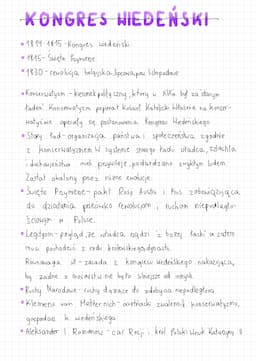 KONGRES WIEDEŃSKI
• 1814-1815 - Kongres wiedeński
• 1815 - Święte Przymierze
• 1830 - rewolucja belgijska,
• Konserwatyzm - kierunek polityczny, który w XIXw. był za starym
ładem. Konserwatyzm popierał Kościół Katolicki. Właśnie na konser-
watyzmie opierały się postanowienia Kongresu Wiedeńskiego
• Stary ład - organizacja państwa i społeczeństwa zgodnie
z konserwatyzmem. W systemie starego ładu władca, szlachta
i duchowieństwo mieli przywileje, podarządzano zwykłym ludem.
Został obalony przez różne rewolucje.
• Święte Przymierze - pakt Rosji, Austrii i Prus zobowiązująca
do działania przeciwko rewolucjom i ruchom niepodległo-
ściowym w Polsce.
• Legitymizm - pogląd, że władca rządzi z bożej łaski a zatem
musi pochodzić z rodu królewskiego/dynastii.
Równowaga sił - zasada z kongresu wiedeńskiego nakazująca,
by żadne z mocarstw nie było silniejsze od innych.
• Ruchy Narodowe - ruchy dążące do zdobycia niepodległości
• Klemens von Metternich - austriacki zwolennik konserwatyzmu,
gospodarz k. wiedeńskiego.
• Aleksander I Romanow - car Rosji i król Polski.